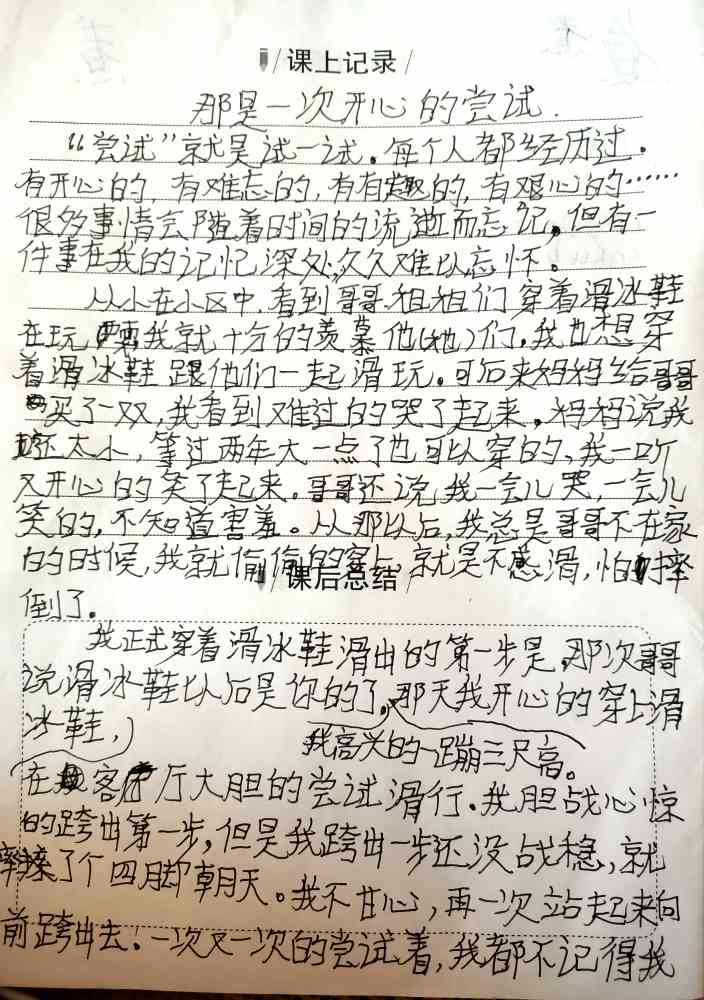 课上记录
那是一次开心的尝试.
“尝试”就是试一试。每个人都经历过。
有开心的,有难忘的,有有趣的,有艰心的……
很多事情会随着时间的流逝而忘记,但有一
件事在我的记忆深处,久久难以忘怀。
从小在小区中,看到哥哥姐姐们穿着滑冰鞋
在玩耍我就十分的羡慕他(她)们,我也想穿
着滑冰鞋跟他们一起滑玩。可后来妈妈给哥哥
买了一双,我看到难过的哭了起来。妈妈说我
还太小,等过两年大一点了也可以穿的,我一听
又开心的笑了起来。哥哥还说我一会儿哭,一会儿
笑的,不知道害羞。从那以后,我总是哥哥不在家
的时候,我就偷偷的穿上,就是不敢滑,怕摔
课后总结
倒了。
我正式穿着滑冰鞋滑出的第一步是,那次哥哥
说滑冰鞋以后是你的了,那天我开心的穿上滑
冰鞋,
我高兴的一蹦三尺高。
在客厅大胆的尝试滑行。我胆战心惊
的跨出第一步,但是我跨出一步还没战稳,就
摔了个四脚朝天。我不甘心,再一次站起来向
前跨出去.一次又一次的尝试着,我都不记得我